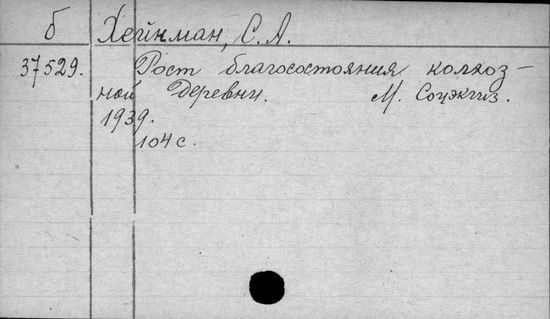 б Хейнман, С. А.
37529. Рост благосостояния колхоз-
ной Деревни. М. Соцэкгиз.
1939.
104 с.